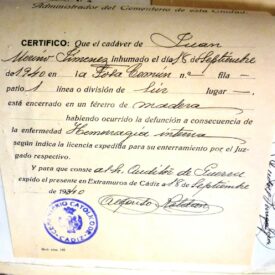 Administrador del Cementerio de esta Ciudad.
CERTIFICO: Que el cadáver de Juan
Jimenez inhumado el día 18 de Septiembre
de 1940 en la Fosa Común n.º — fila —
patio 1 línea o división de Sur lugar —,
está encerrado en un féretro de madera
habiendo ocurrido la defunción a consecuencia de
la enfermedad Hemorragia interna
según indica la licencia expedida para su enterramiento por el Juz-
gado respectivo.
Y para que conste al Auditor de Guerra
expido el presente en Extramuros de Cádiz a 18 de Septiembre
de 1940
CATÓLICO
CADIZ